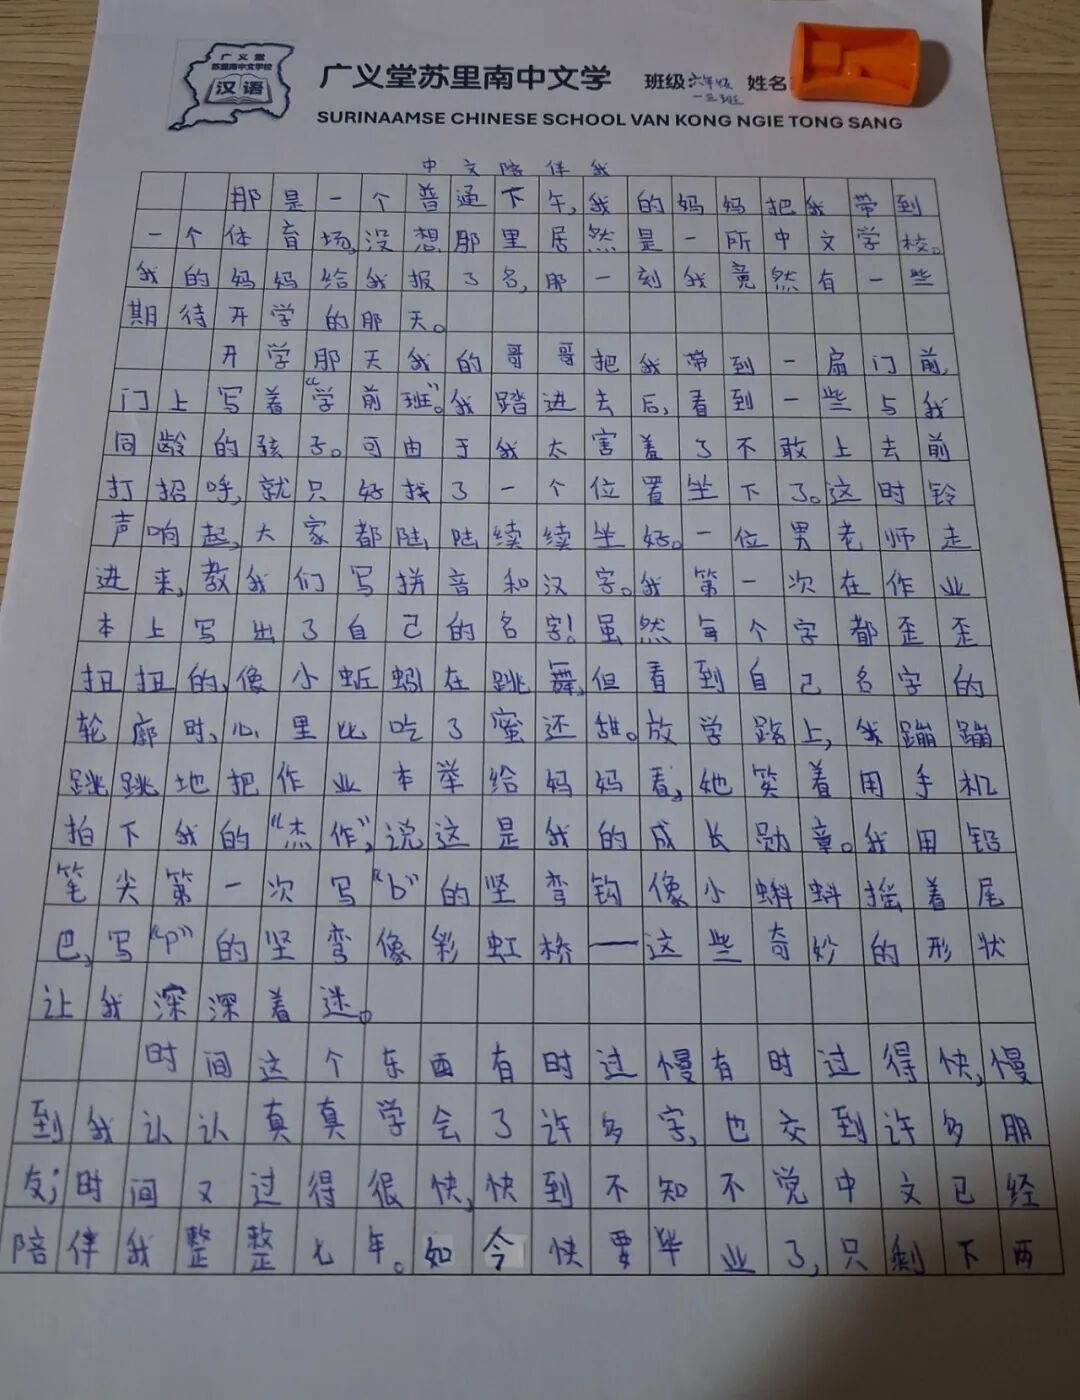 广义堂
苏里南中文学校
汉语
广义堂苏里南中文学 班级六年级一三班 姓名
SURINAAMSE CHINESE SCHOOL VAN KONG NGIE TONG SANG
中文陪伴我
那是一个普通下午,我的妈妈把我带到
一个体育场,没想那里居然是一所中文学校。
我的妈妈给我报了名,那一刻我竟然有一些
期待开学的那天。
开学那天我的哥哥把我带到一扇门前,
门上写着“学前班”。我踏进去后,看到一些与我
同龄的孩子。可由于我太害羞了不敢上去前
打招呼,就只好找了一个位置坐下了。这时铃
声响起,大家都陆陆续续坐好。一位男老师走
进来,教我们写拼音和汉字。我第一次在作业
本上写出了自己的名字!虽然每个字都歪歪
扭扭的,像小蚯蚓在跳舞,但看到自己名字的
轮廓时,心里比吃了蜜还甜。放学路上,我蹦蹦
跳跳地把作业本举给妈妈看,她笑着用手机
拍下我的“杰作”,说这是我的成长勋章。我用铅
笔尖第一次写“b”的竖弯钩像小蝌蚪摇着尾
巴,写“p”的竖弯像彩虹桥——这些奇妙的形状
让我深深着迷。
时间这个东西有时过慢有时过得快,慢
到我认认真真学会了许多字,也交到许多朋
友;时间又过得很快,快到不知不觉中文已经
陪伴我整整七年。如今快要毕业了,只剩下两